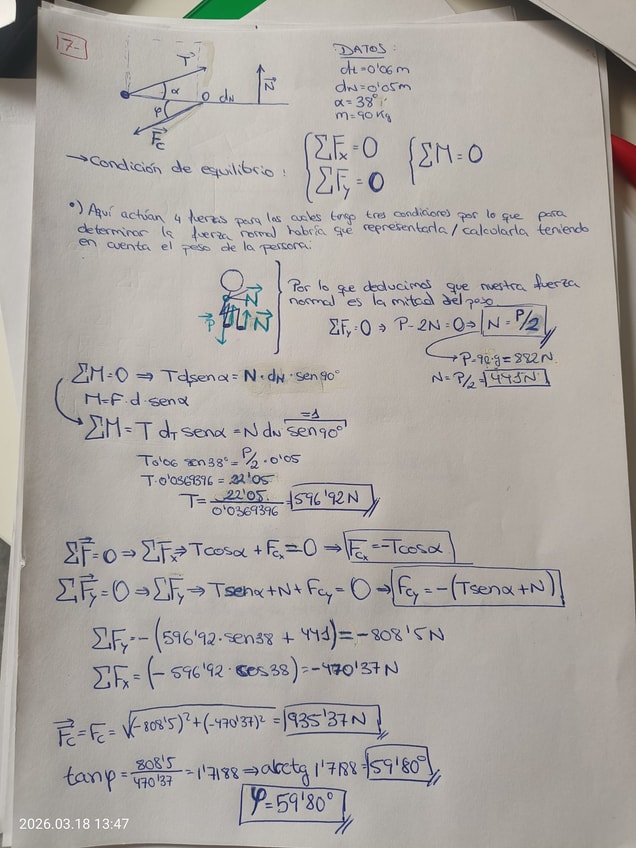 7.-
T
α
0 dN
N
φ
Fc
DATOS:
dt=0'06m
dN=0'05m
α=38°
m=90Kg
→Condición de equilibrio: { ΣFx=0 { ΣM=0
ΣFy=0
•) Aquí actúan 4 fuerzas para las cuales tengo tres condiciones por lo que para
determinar la fuerza normal habría que representarla/calcularla teniendo
en cuenta el peso de la persona:
N
P N
Por lo que deducimos que nuestra fuerza
normal es la mitad del peso
ΣFy=0 ⇒ P-2N=0 ⇒ N=P/2
P=90·g=882N
N=P/2=441N
ΣM=0 ⇒ Tdsenα=N·dN·sen90°
M=F·d·senα
=1
ΣM=T dT senα=N dN sen90°
T0'06 sen38°=P/2·0'05
T·0'0369396=22'05
T=22'05/0'0369396=596'92N
ΣF=0 ⇒ ΣFx⇒Tcosα+Fcx=0 ⇒ Fcx=-Tcosα
ΣFy=0 ⇒ ΣFy⇒Tsenα+N+Fcy=0 ⇒ Fcy=-(Tsenα+N)
ΣFy=-(596'92·sen38+441)=-808'5N
ΣFx=(-596'92·cos38)=-470'37N
Fc=Fc=√(-808'5)²+(-470'37)²=935'37N
tanφ=808'5/470'37=1'7188⇒arctg 1'7188=59'80°
φ=59'80°
2026.03.18 13:47